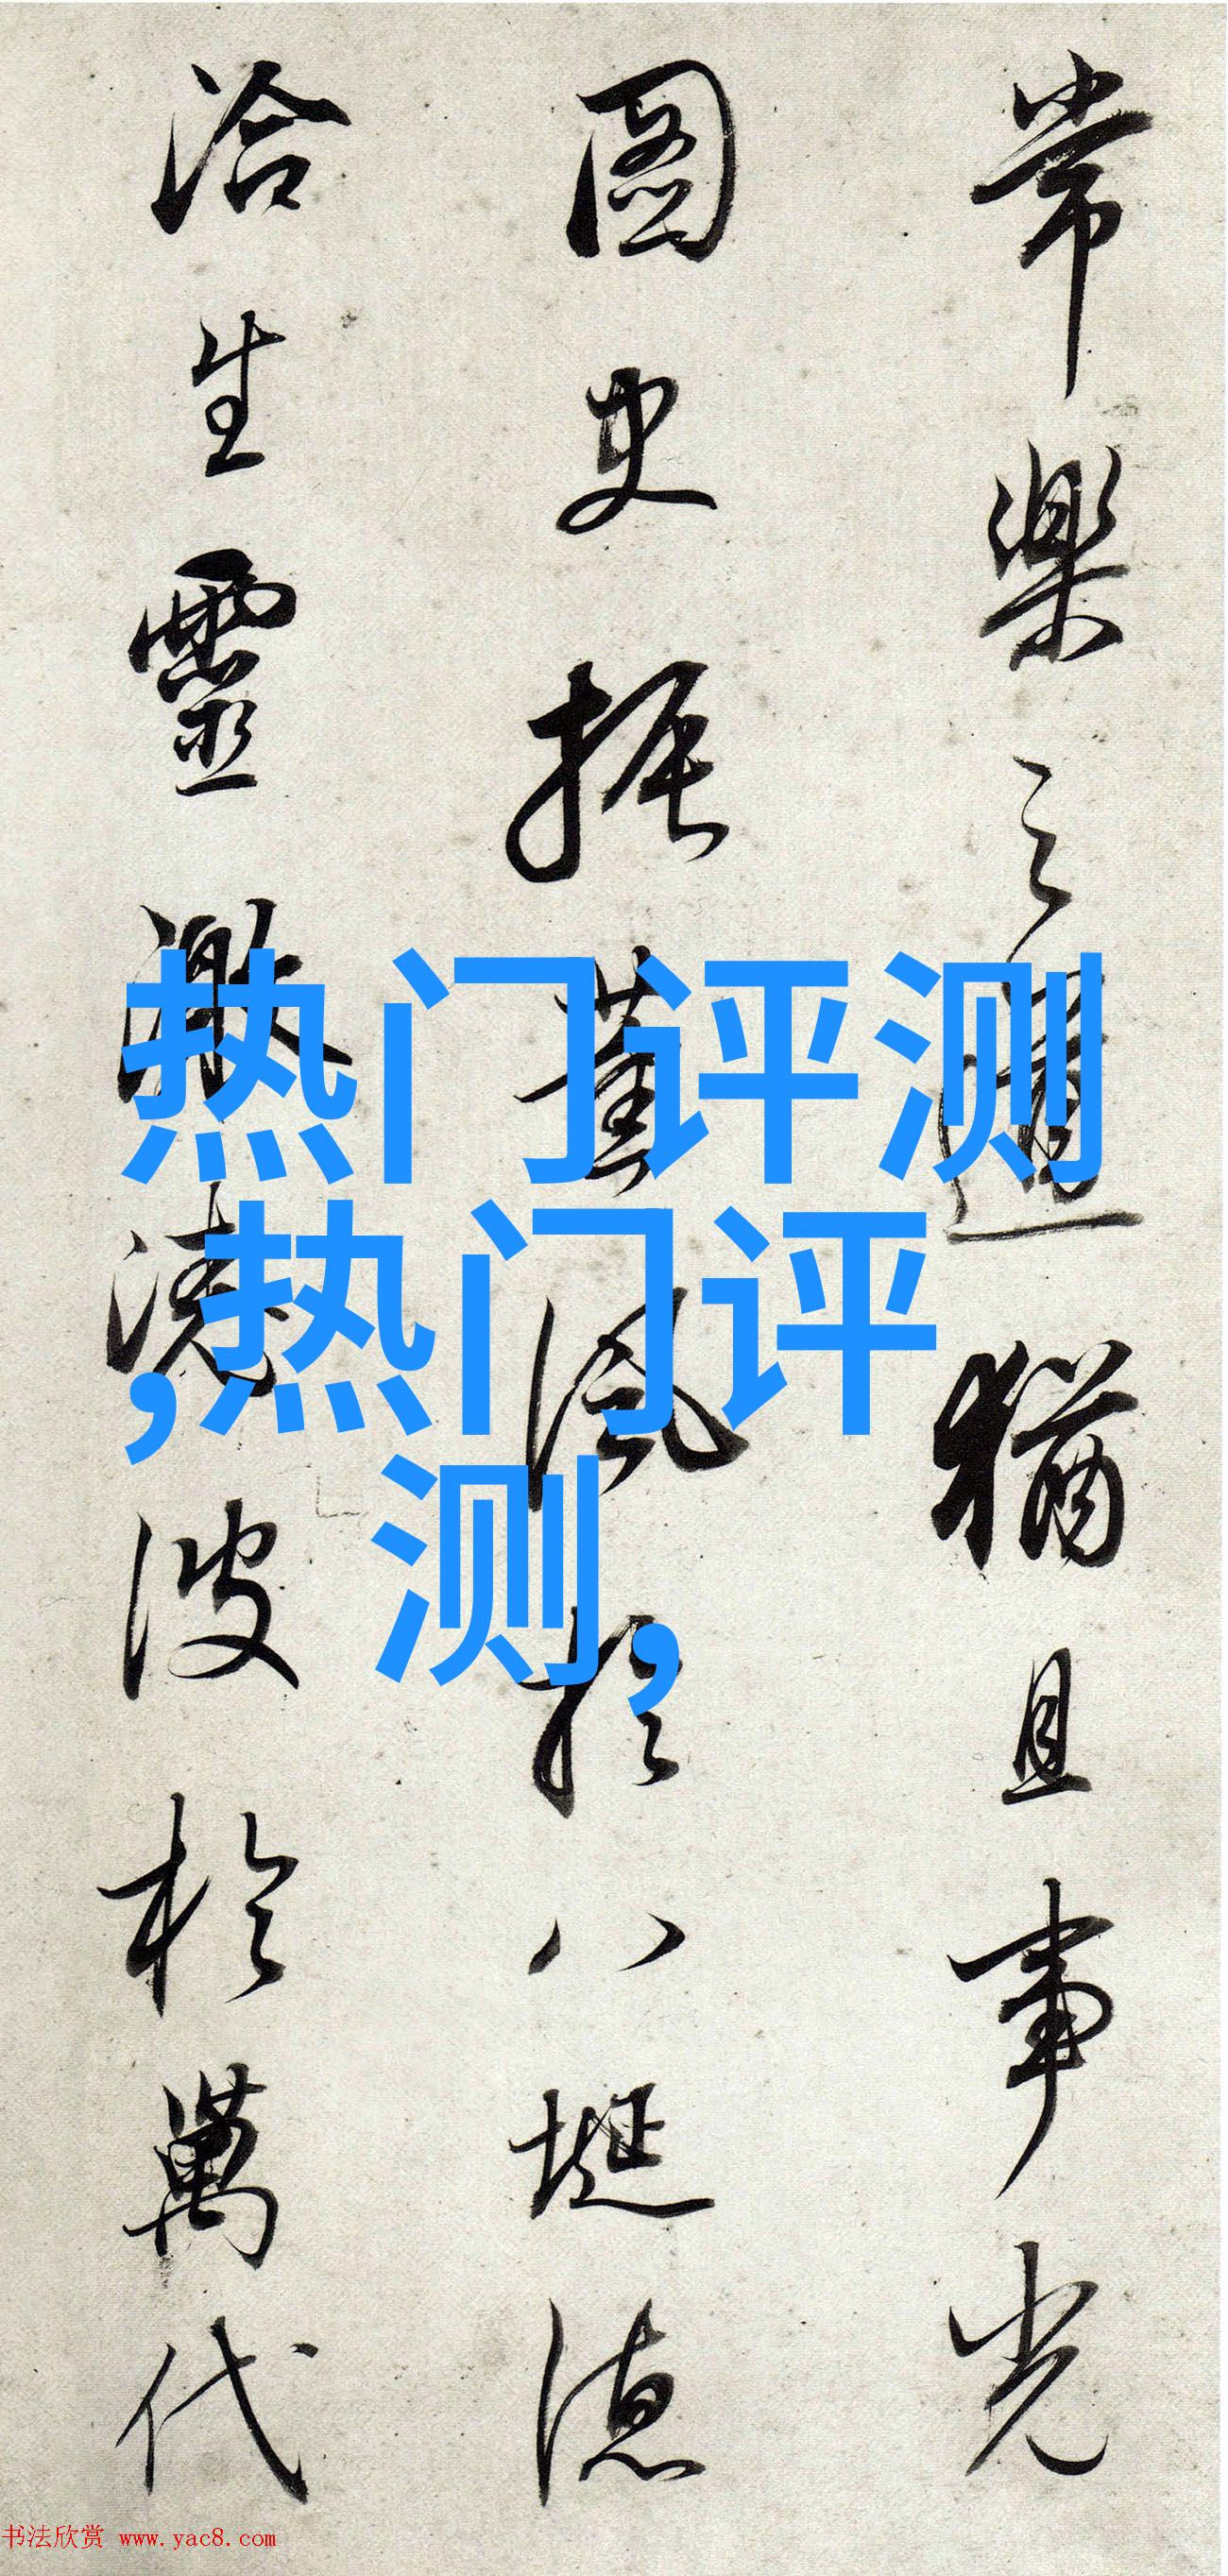 常樂之道猶且事光
圖史振薰風於八埏德
洽生靈激清波於萬代
热门评测
,热门评
测,
书法欣赏 www.yac8.com